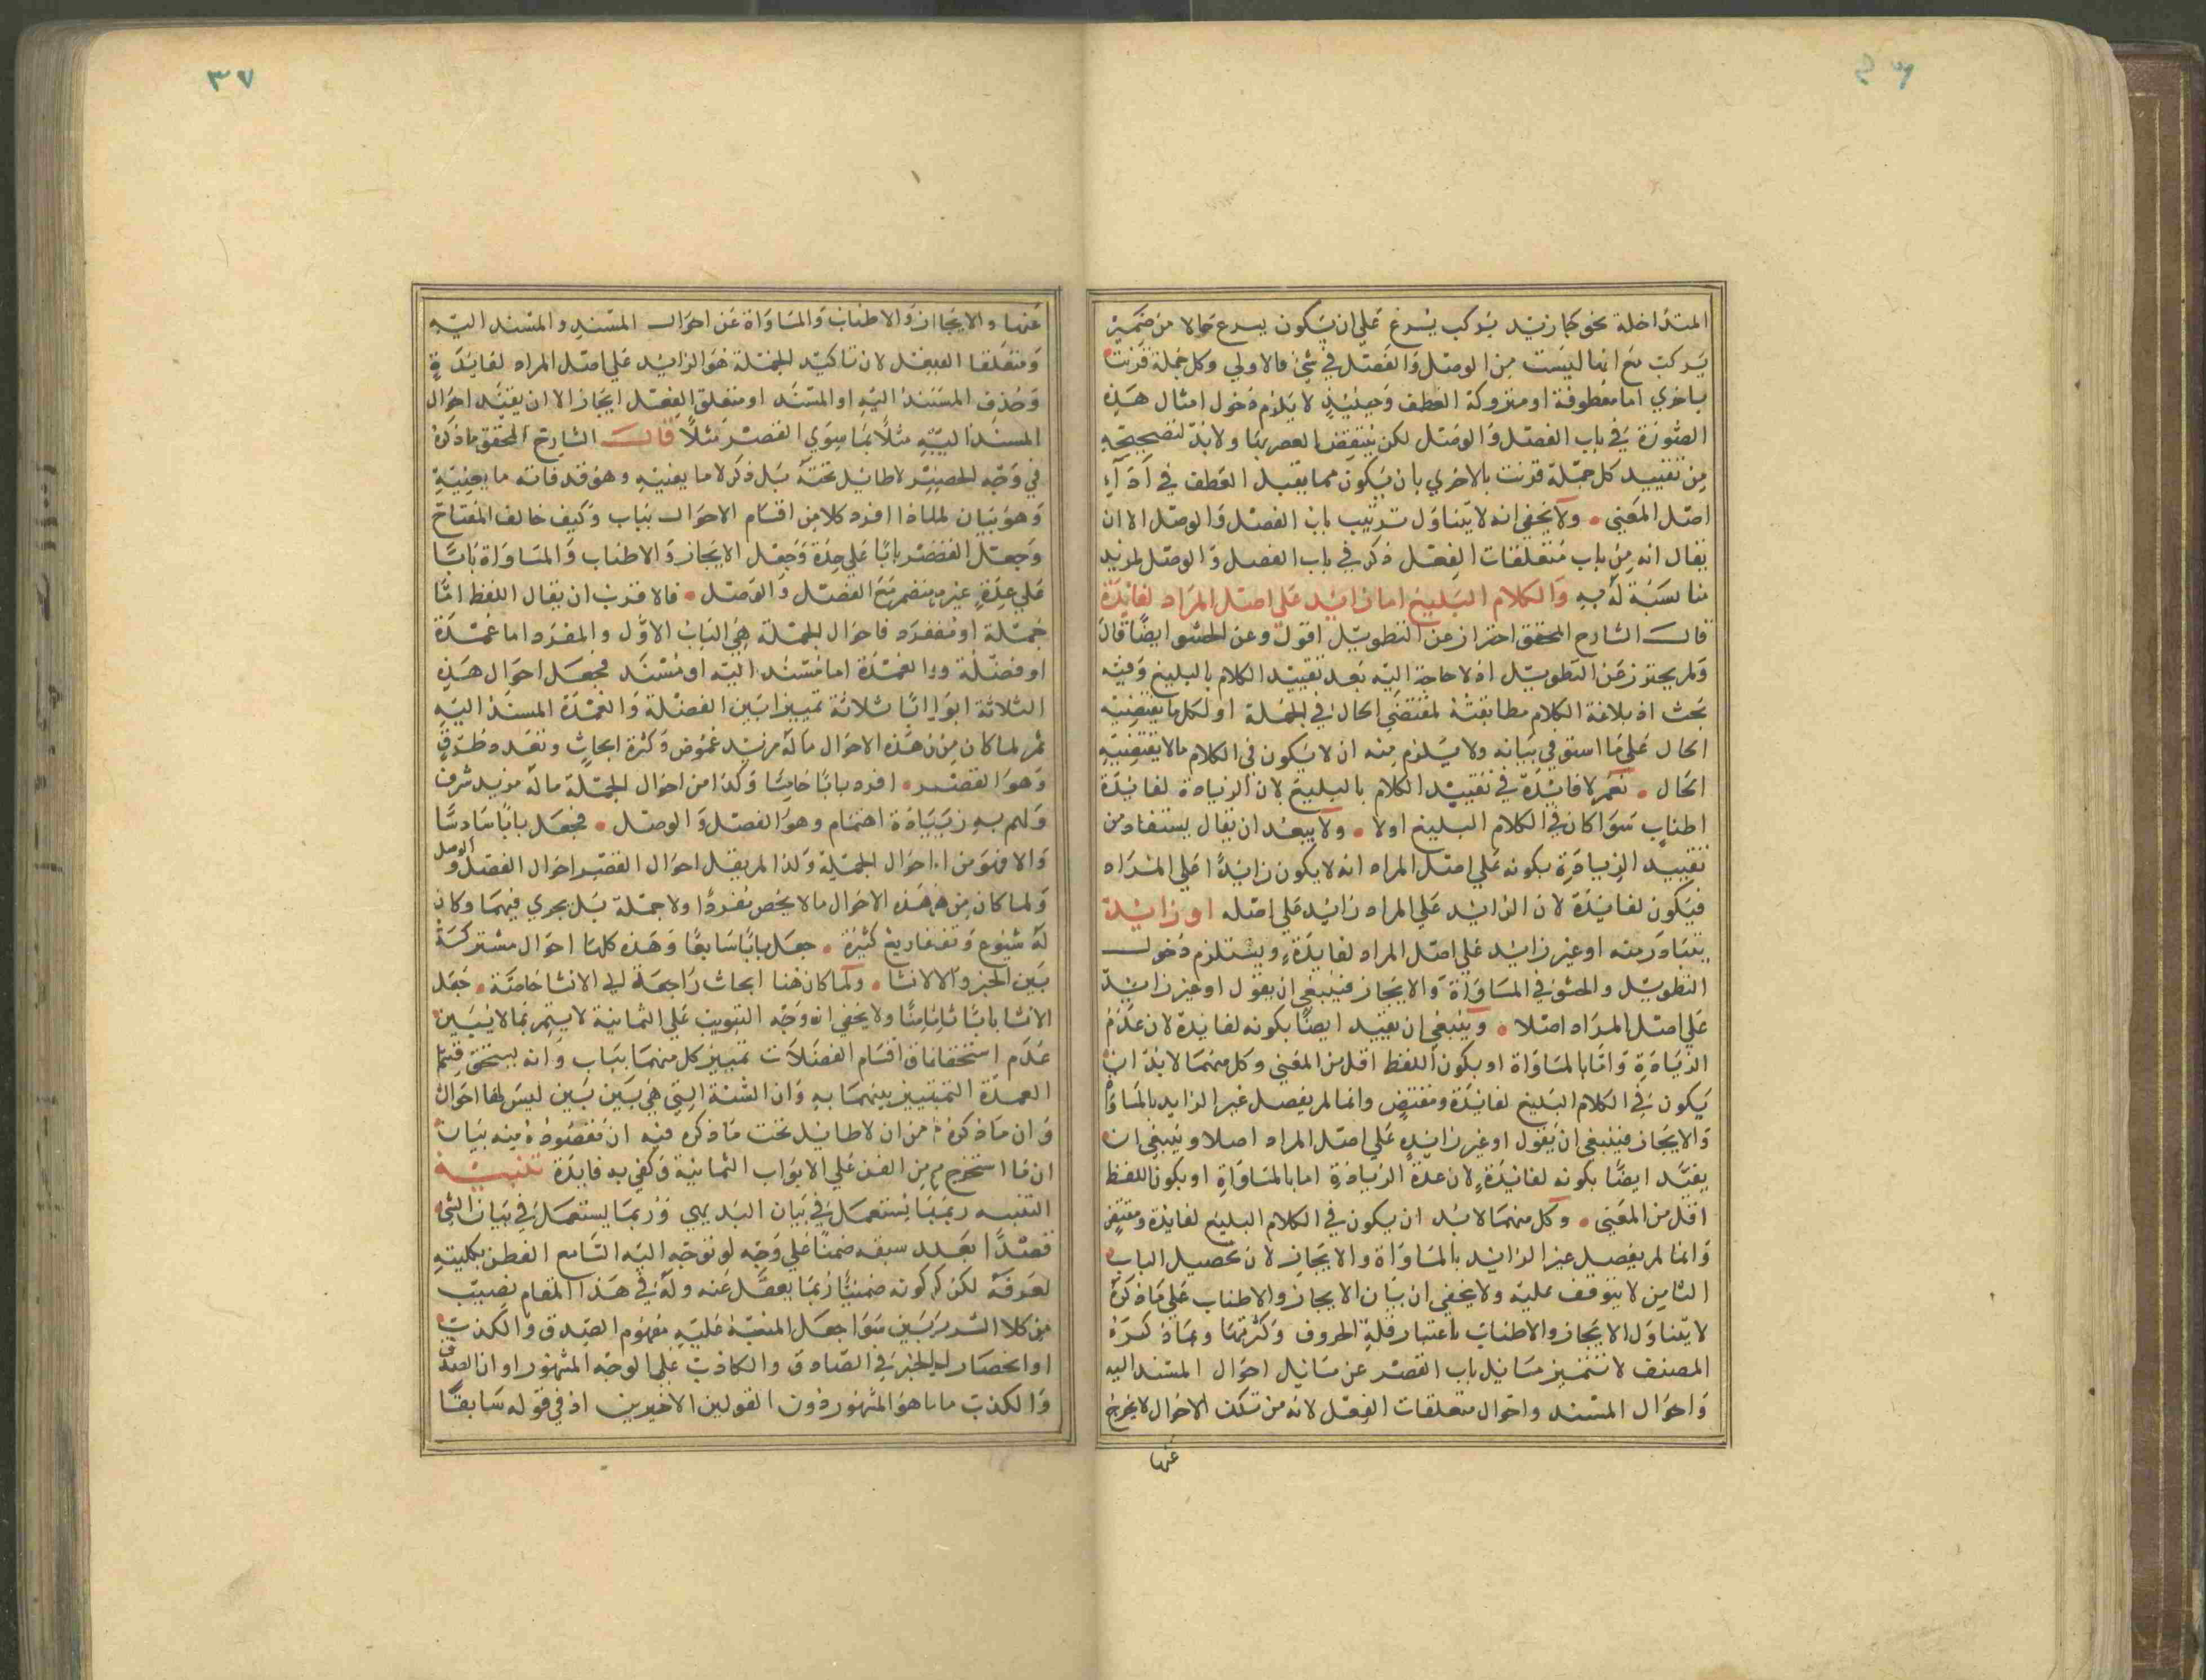 المتداخلة نحو جاء زيد يركب يسرع على ان يكون يسرع حالا من ضمير
يركب مع انها ليست من الوصل والفصل في شئ فالاولي وكل جملة قرنت
باخري اما معطوفة او متروكة العطف وحينئذ لا يلزم دخول امثال هذه
الصورة في باب الفصل والوصل لكن ينتقض الحصر بها ولا بد لتصحيحه
من تقييد كل جملة قرنت بالاخري بان يكون مما يقبل العطف في اداء
اصل المعني ولا يخفي انه لا يتناول ترتيب باب الفصل والوصل الا ان
يقال انه من باب متعلقات الفعل ذكر في باب الفصل والوصل لمزيد
مناسبة له به والكلام البليغ اما زائد علي اصل المراد لفائدة
قال الشارح المحقق احتراز عن التطويل اقول وعن الحشو ايضا قال
ولم يحترز عن التطويل اذ لا حاجة اليه بعد تقييد الكلام بالبليغ وفيه
بحث اذ بلاغة الكلام مطابقته لمقتضي الحال في الجملة او لكل ما يقتضيه
الحال علي ما استوفي بيانه ولا يلزم منه ان لا يكون في الكلام مالا يقتضيه
الحال نعم لا فائدة في تقييد الكلام بالبليغ لان الزيادة لفائدة
اطناب سوا كان في الكلام البليغ اولا ولا يبعد ان يقال يستفاد من
تقييد الزيادة بكونه علي اصل المراد انه لا يكون زائدا علي المراد
فيكون لفائدة لان الزائد علي المراد زائد علي اصله او زائدة
يتبادر منه او غير زائد علي اصل المراد لفايدة ويستلزم دخول
التطويل والحشو في المساواة والايجاز فينبغي ان يقول او غير زائد
علي اصل المراد اصلا وينبغي ان يقيد ايضا بكونه لفائدة لان عدم
الزيادة واما بالمساواة او بكون اللفظ اقل من المعني وكل منهما لا بد ان
يكون في الكلام البليغ لفائدة ومقتض وانما لم يفصل غير الزايد بالمساواة
والايجاز فينبغي ان يقول او غير زائد علي اصل المراد اصلا وينبغي ان
يقيد ايضا بكونه لفائدة لان عدة الزيادة اما بالمساواة او بكون اللفظ
اقل من المعني وكل منهما لا بد ان يكون في الكلام البليغ لفايدة ومقتض
وانما لم يفصل غير الزائد بالمساواة والايجاز لان تحصيل الباب
الثامن لا يتوقف عليه ولا يخفي ان بيان الايجاز والاطناب علي ما ذكره
لا يتناول الايجاز والاطناب باعتبار قلة الحروف وكثرتها وما ذكره
المصنف لا تتميز مسائل باب القصر عن مسائل احوال المسند اليه
واحوال المسند واحوال متعلقات الفعل لانه من تلك الاحوال لا يخرج
عنها
٣٧
عنها والايجاز والاطناب والمساواة عن احوال المسند والمسند اليه
ومتعلقا الفعل لان تاكيد الجملة هو الزائد علي اصل المراد لفايدة
وحذف المسند اليه او المسند او متعلق الفعل ايجاز الا ان يقيد احوال
المسند اليه مثلا بما سوي القصر مثلا قال الشارح المحقق ما ذكره
في وجه الحصر لا طائل تحته بل ذكر لا ما يعنيه وهو قد فاته ما يعنيه
وهو بيان لماذا افرد كلا من اقسام الاحوال بباب وكيف خالف المفتاح
وجعل القصر بابا علي حدة وجعل الايجاز والاطناب والمساواة بابا
علي حدة غير منضم مع الفصل والوصل فالاقرب ان يقال اللفظ اما
جملة او مفرد فاحوال الجملة هي الباب الاول والمفرد اما عمدة
او فضلة والعمدة اما مسند اليه او مسند فجعل احوال هذه
الثلاثة ابوابا ثلاثة تمييزا بين الفضلة والعمدة المسند اليه
ثم لما كان من هذه الاحوال ماله مزيد غموض وكثرة ابحاث وتعدد طرق
وهو القصر افرد بابا خامسا وكذا من احوال الجملة ماله مزيد شرف
ولهم به زيادة اهتمام وهو الفصل والوصل فجعل بابا سادسا
والا فهو من احوال الجملة ولذا لم يقل احوال القصر احوال الفصل والوصل
ولما كان من هذه الاحوال مالا يخص مفردا ولا جملة بل يجري فيهما وكان
له شيوع وتفاريع كثيرة جعل بابا سابعا وهذه كلها احوال مشتركة
بين الخبر والانشا ولما كان هنا ابحاث راجعة الي الانشا خاصة جعل
الانشا بابا ثامنا ولا يخفي ان وجه التبويب علي الثمانية لا يتم بما لا يبين
عدم استحقاق اقسام الفضلات تمييز كل منهما بباب وانه يستحق قسما
العمدة التمييز بينهما به وان الشئة التي هي بين بين ليس لها احوال
وان ما ذكره من ان لا طايل تحت ما ذكره فيه ان مقصوده منه بيان
ان ما استخرجه من الفن علي الابواب الثمانية وكفي به فايدة تنبيه
التنبيه ربما يستعمل في بيان البديهي وربما يستعمل في بيان الشئ
قصدا بعد سبقه ضمنا علي وجه لو توجه اليه السامع الفطن بكليته
لعرفه لكن كونه ضمنيا ربما يغفل عنه وله في هذا المقام نصيب
من كلا الشربين سوا جعل المنبه عليه مفهوم الصدق والكذب
او انحصار الخبر في الصادق والكاذب علي الوجه المشهور او ان الصدق
والكذب ما هو المشهور دون القولين الاخيرين اذ في قوله سابقا